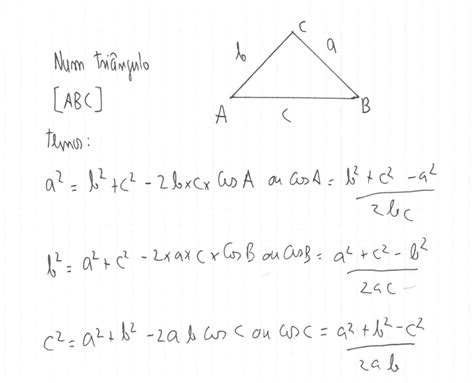 Num triângulo
[ABC]
temos:
C
b
a
A
c
B
a² = b² + c² - 2b×c× cos A ou cos A = (b² + c² - a²)/(2bc)
b² = a² + c² - 2×a×c×cos B ou cos B = (a² + c² - b²)/(2ac)
c² = a² + b² - 2ab cos C ou cos C = (a² + b² - c²)/(2ab)